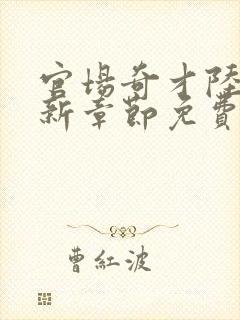 官場奇才陸
新章節免費
曹紅波